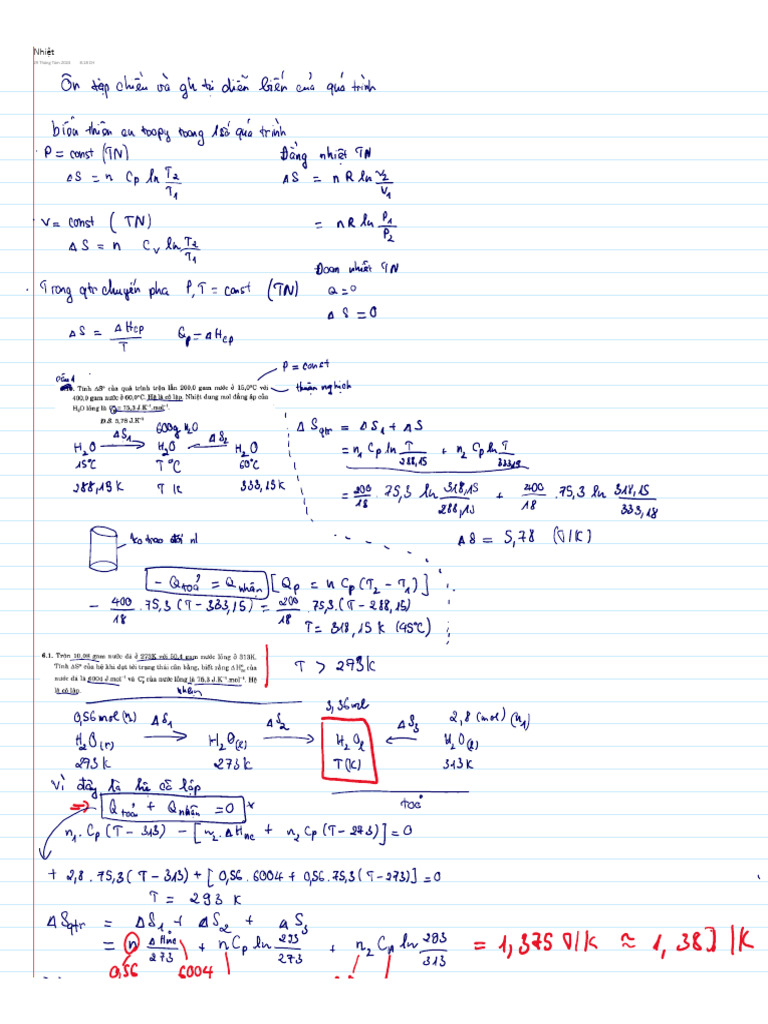 Nhiệt
Ôn tập chiều và gh tự diễn biến của quá trình
biến thiên en troopy trong 1 số quá trình
P = const (TN)
ΔS = n Cp ln T2/T1
Đẳng nhiệt TN
ΔS = n R ln V2/V1
= nR ln P1/P2
V = const (TN)
ΔS = n Cv ln T2/T1
Đoạn nhiệt TN
Q = 0
ΔS = 0
. Trong qtr chuyển pha P,T = const (TN)
ΔS = ΔHcp/T Qp = ΔHcp
P = const
thuận nghịch
Câu 1
Tính ΔS° của quá trình trộn lẫn 200,0 gam nước ở 15,0°C với
400,0 gam nước ở 60,0°C. Hệ là cô lập. Nhiệt dung mol đẳng áp của
H2O lỏng là Cp = 75,3 J.K⁻¹.mol⁻¹.
Đ.S. 5,78 J.K⁻¹
H2O ΔS1 → 600g H2O H2O ← ΔS2 H2O
15°C T°C 60°C
288,15K T K 333,15K
ΔSqtr = ΔS1 + ΔS
= n1 Cp ln T/288,15 + n2 Cp ln T/333,15
= 200/18 . 75,3 ln 318,15/288,15 + 400/18 . 75,3 ln 318,15/333,15
ΔS = 5,78 (J/K)
ko trao đổi nl
- Qtoả = Qnhận [Qp = n Cp (T2 - T1)]
- 400/18 . 75,3 (T - 333,15) = 200/18 . 75,3 (T - 288,15)
T = 318,15 K (45°C)
6.1. Trộn 10,08 gam nước đá ở 273K với 50,4 gam nước lỏng ở 313K.
Tính ΔS° của hệ khi đạt tới trạng thái cân bằng, biết rằng ΔH°nc của
nước đá là 6004 J.mol⁻¹ và C°p của nước lỏng là 75,3 J.K⁻¹.mol⁻¹. Hệ
là cô lập.
T > 273K
nhận
3,36 mol
0,56 mol (n2) ΔS1 ΔS2 ΔS3 2,8 (mol) (n1)
H2O(r) → H2O(l) → H2Ol ← H2O(l)
273K 273K T(K) 313K
Vì đây là hệ cô lập
toả
⇒ Qtoả + Qnhận = 0 *
n1.Cp(T - 313) - [n2.ΔHnc + n2Cp(T - 273)] = 0
+ 2,8.75,3(T - 313) + [0,56.6004 + 0,56.75,3(T - 273)] = 0
T = 293 K
ΔSqtr = ΔS1 + ΔS2 + ΔS3
= n ΔHnc/273 + nCp ln 293/273 + n2 Cp ln 293/313 = 1,375 J/K ≈ 1,38 J/K
0,56 6004